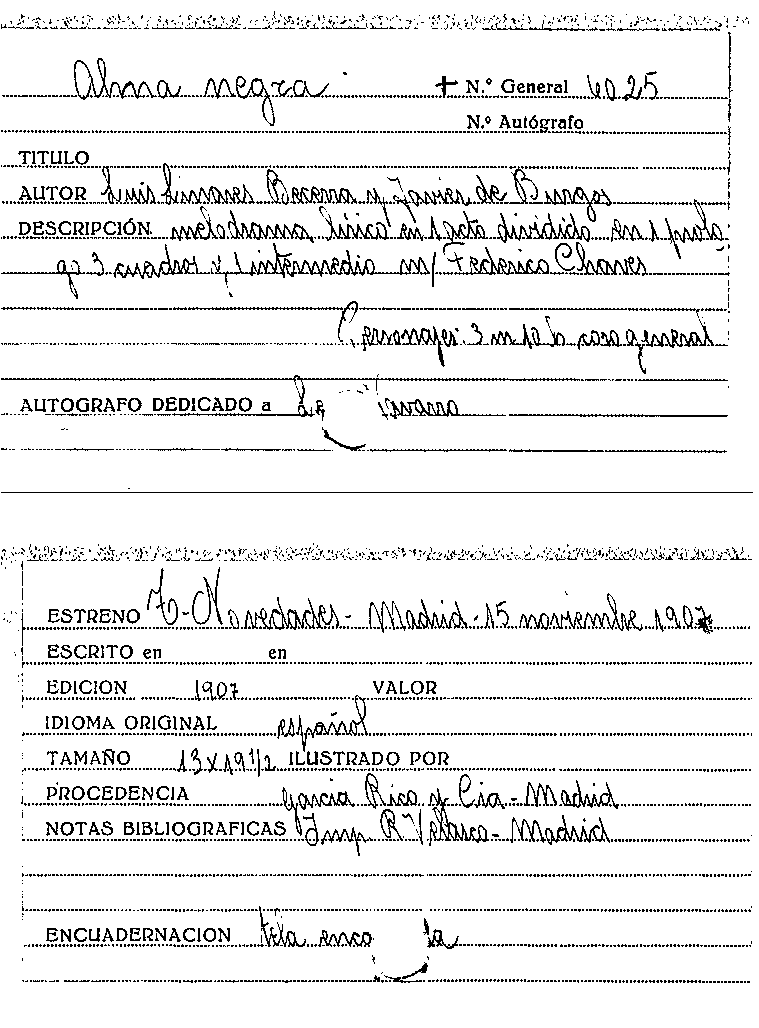 Alma negra + N.º General 6025
N.º Autógrafo
TITULO
AUTOR Luis Linares Becerra y Javier de Burgos
DESCRIPCIÓN melodrama lírico en 1 acto dividido en 1 prólo-
go 3 cuadros y 1 intermedio m/ Federico Chaves
Personajes: 3 m 10 h coro general
AUTOGRAFO DEDICADO a
ESTRENO T-Novedades - Madrid - 15 noviembre 1907
ESCRITO en en
EDICION 1907 VALOR
IDIOMA ORIGINAL español
TAMAÑO 13 x 19 1/2 ILUSTRADO POR
PROCEDENCIA Garcia Rico y Cia - Madrid
NOTAS BIBLIOGRAFICAS Imp R Velasco - Madrid
ENCUADERNACION tela